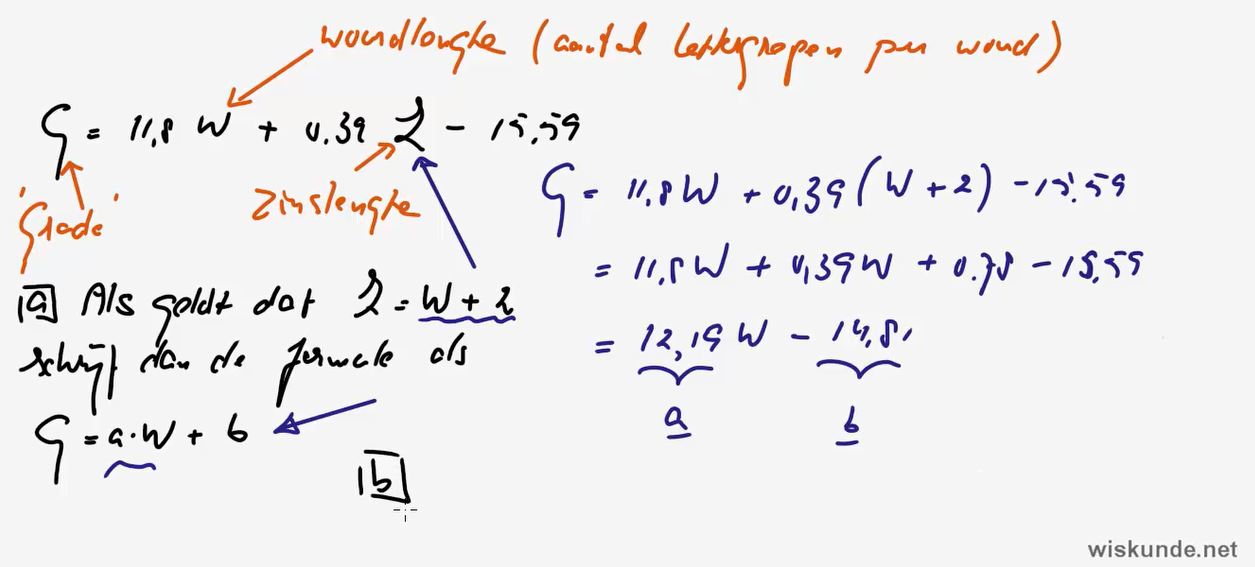 woordlengte (aantal lettergrepen per woord)
G = 11,8 W + 0,39 Z - 15,59
'Grade'
Zinslengte
a Als geldt dat Z = W + 2
schrijf dan de formule als
G = a·W + b
b
G = 11,8W + 0,39(W + 2) - 15,59
= 11,8W + 0,39W + 0,78 - 15,59
= 12,19 W - 14,81
a b
wiskunde.net